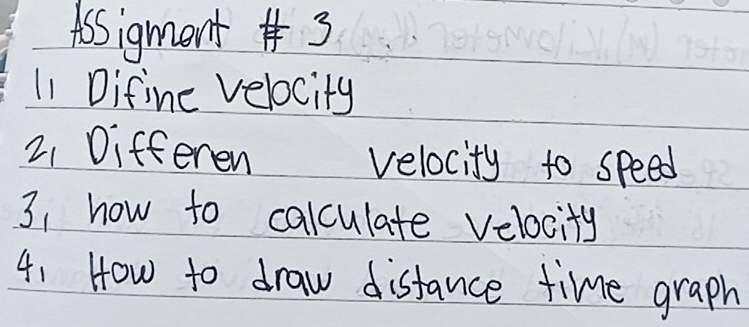 Assigment # 3
1, Difine velocity
2, Differen velocity to speed
3, how to calculate velocity
4, How to draw distance time graph